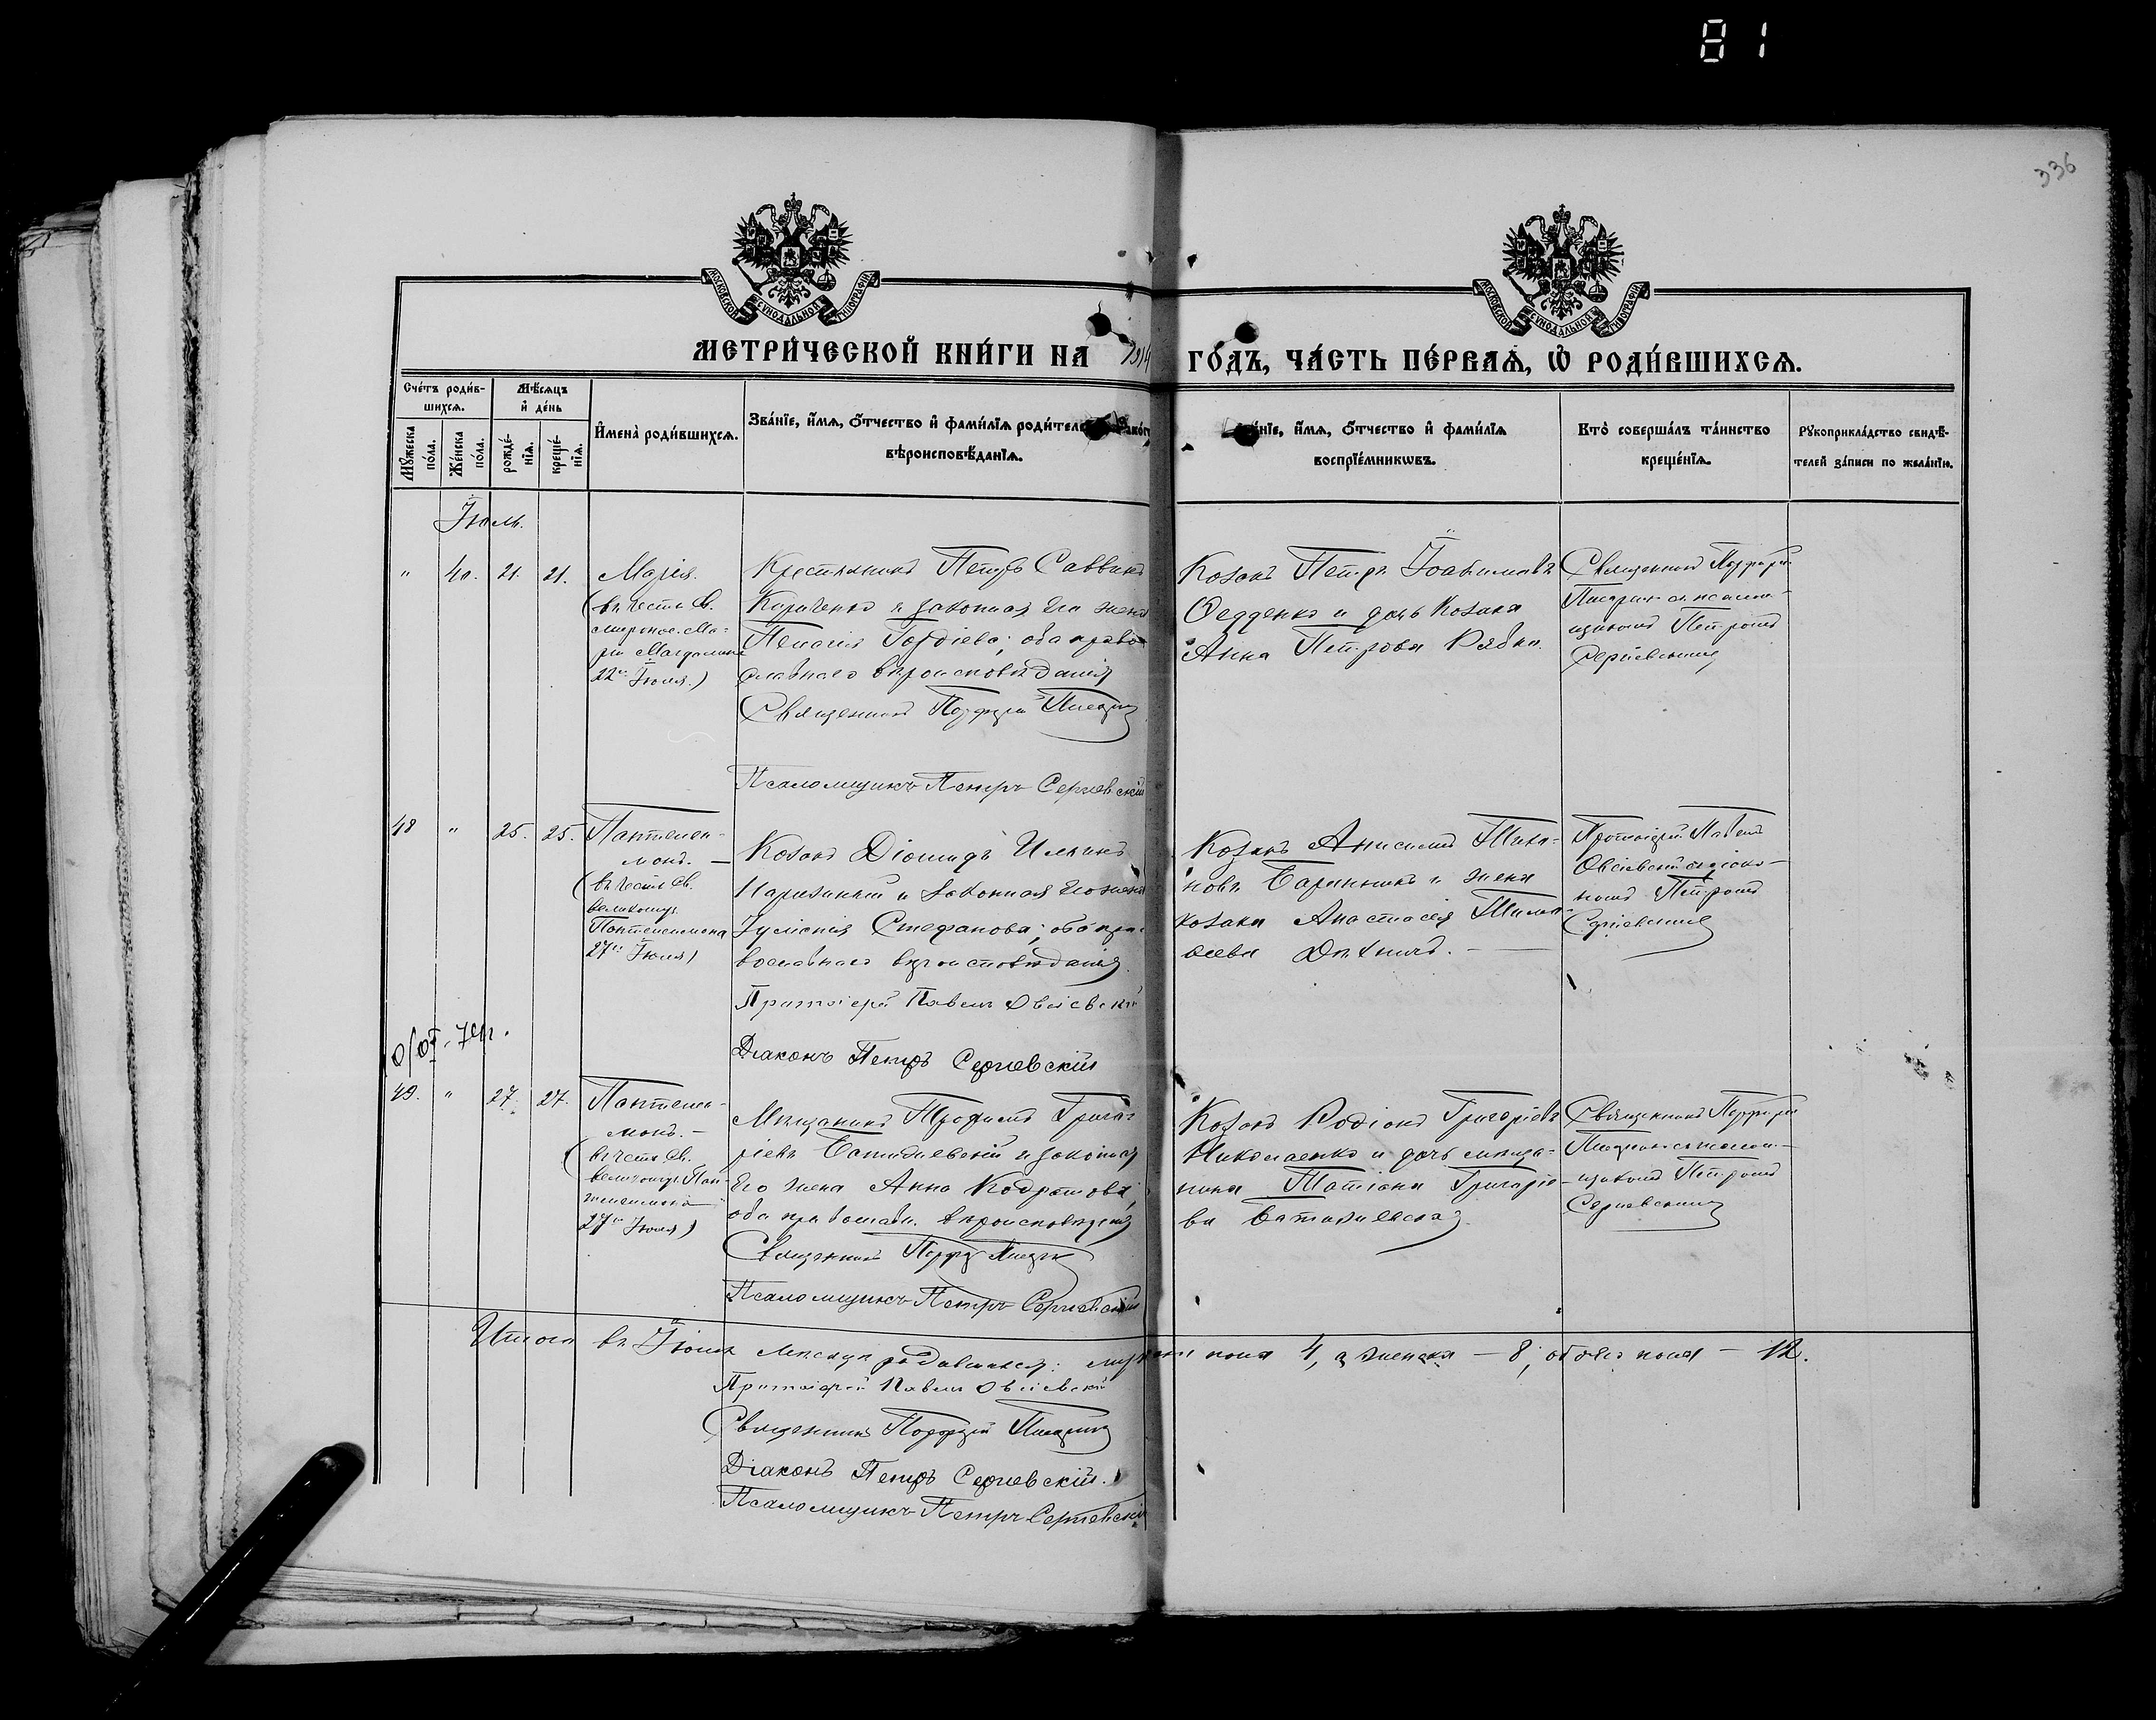 81
336
МОСКОВСКОЙ СѴНОДАЛЬНОЙ ТИПОГРАФІИ
МОСКОВСКОЙ СѴНОДАЛЬНОЙ ТИПОГРАФІИ
МЕТРИ́ЧЕСКОЙ КНИ́ГИ НА 1914 ГО́ДЪ, ЧА́СТЬ ПЕ́РВАѦ, Ѡ РОДИ́ВШИХСѦ.
Сче́тъ роди́в-
шихсѧ.
Мꙋ́жеска по́ла.
Же́нска по́ла.
Мѣ́сѧцъ
и де́нь
рожде́-
нїѧ.
креще́-
нїѧ.
Имена̀ роди́вшихсѧ.
Зва́нїе, и́мѧ, о́тчество и фами́лїѧ роди́теле
вѣроисповѣ́данїѧ.
нїе, и́мѧ, о́тчество и фами́лїѧ
воспрїе́мникѡвъ.
Кто̀ соверша́лъ та́инство
креще́нїѧ.
Рꙋкоприкла́дство свидѣ́-
телей за́писи по жела́нїю.
Іюль.
" 40. 21. 21.
Марія.
(въ честь св.
мѵронос. Ма-
ріи Магдалины
22го Іюля.)
Крестьянинъ Петръ Саввинъ
и законная его жена
Пелагія Гордіева; оба право
славнаго вѣроисповѣданія
Священникъ Порфирій
Псаломщикъ Петръ Сергіевскій
Козакъ Петръ Іоакимовъ
и дочь козака
Анна Петрова Рябка.
Священникъ Порфирій
съ псалом-
щикомъ Петромъ
Сергіевскимъ
48 " 25. 25.
Пантелеи-
монъ. —
(въ честь св.
великомуч.
Пантелеимона
27го Іюля)
Козакъ Діомидъ Ильинъ
и законная его жена
Іуліанія Стефанова; оба пра-
вославнаго вѣроисповѣданія
Протоіерей Павелъ Овсіевскій
Діаконъ Петръ Сергіевскій
Козакъ Анисимъ
и жена
козака Анастасія
Протоіерей Павелъ
Овсіевскій съ діако-
номъ Петромъ
Сергіевскимъ
49. " 27. 27.
Пантелеи-
монъ. —
(въ честь св.
великомуч. Пан-
телеимона
27го Іюля)
Мѣщанинъ Трофимъ Григо-
ріевъ и законная
его жена Анна Кодратова;
оба православн. вѣроисповѣданія
Священникъ Порфирій
Псаломщикъ Петръ Сергіевскій
Козакъ Родіонъ Григоріевъ
Николаенко и дочь мѣща-
нина Татіана Григоріе-
ва
Священникъ Порфирій
съ псалом-
щикомъ Петромъ
Сергіевскимъ
Итого въ Іюлѣ мѣсяцѣ родившихся: мужеска пола 4, а женска — 8, обоего пола — 12.
Протоіерей Павелъ Овсіевскій
Священникъ Порфирій
Діаконъ Петръ Сергіевскій.
Псаломщикъ Петръ Сергіевскій